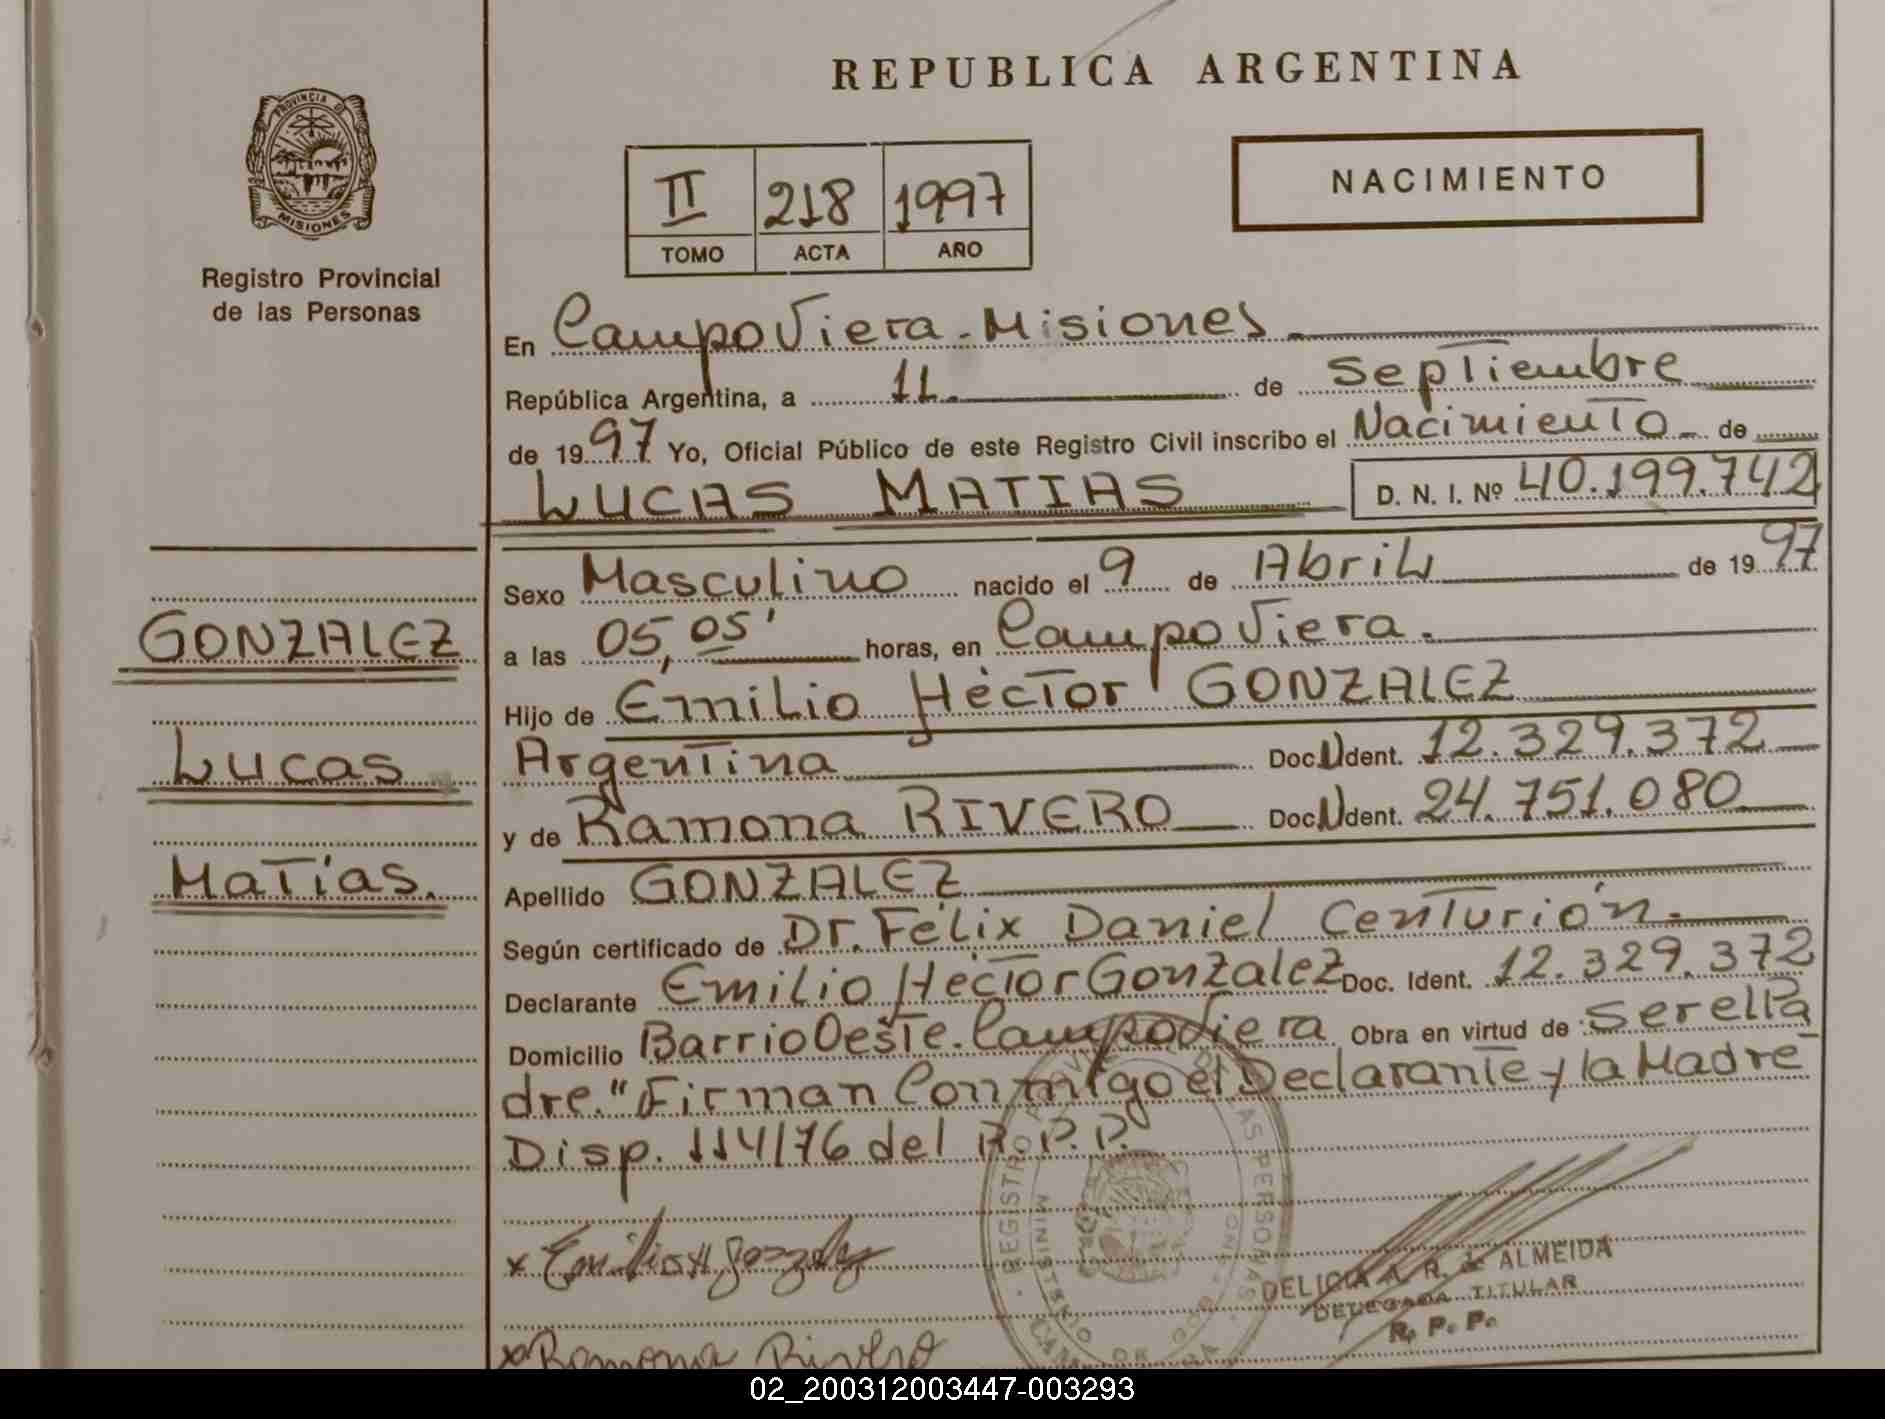 REPUBLICA ARGENTINA
PROVINCIA DE
MISIONES
Registro Provincial
de las Personas
II 218 1997
TOMO ACTA AÑO
NACIMIENTO
En Campo Viera - Misiones
República Argentina, a 11. de Septiembre
de 1997 Yo, Oficial Público de este Registro Civil inscribo el Nacimiento de
LUCAS MATIAS D. N. I. Nº 40.199.742
Sexo Masculino nacido el 9 de Abril de 1997
a las 05,05' horas, en Campo Viera.
Hijo de Emilio Héctor GONZALEZ
Argentina Doc. N Ident. 12.329.372
y de Ramona RIVERO Doc. N Ident. 24.751.080
Apellido GONZALEZ
Según certificado de Dr. Félix Daniel Centurión.
Declarante Emilio Héctor Gonzalez Doc. Ident. 12.329.372
Domicilio Barrio Oeste. Campo Viera Obra en virtud de ser el Pa
dre." Firman Conmigo el Declarante y la Madre
Disp. 114/76 del R.P.P.
GONZALEZ
Lucas
Matías.
x Emilio H Gonzalez
x Ramona Rivero
REGISTRO PROVINCIAL DE LAS PERSONAS
DELICIA A. R. de ALMEIDA
DELEGADA TITULAR
R. P. P.
02_200312003447-003293